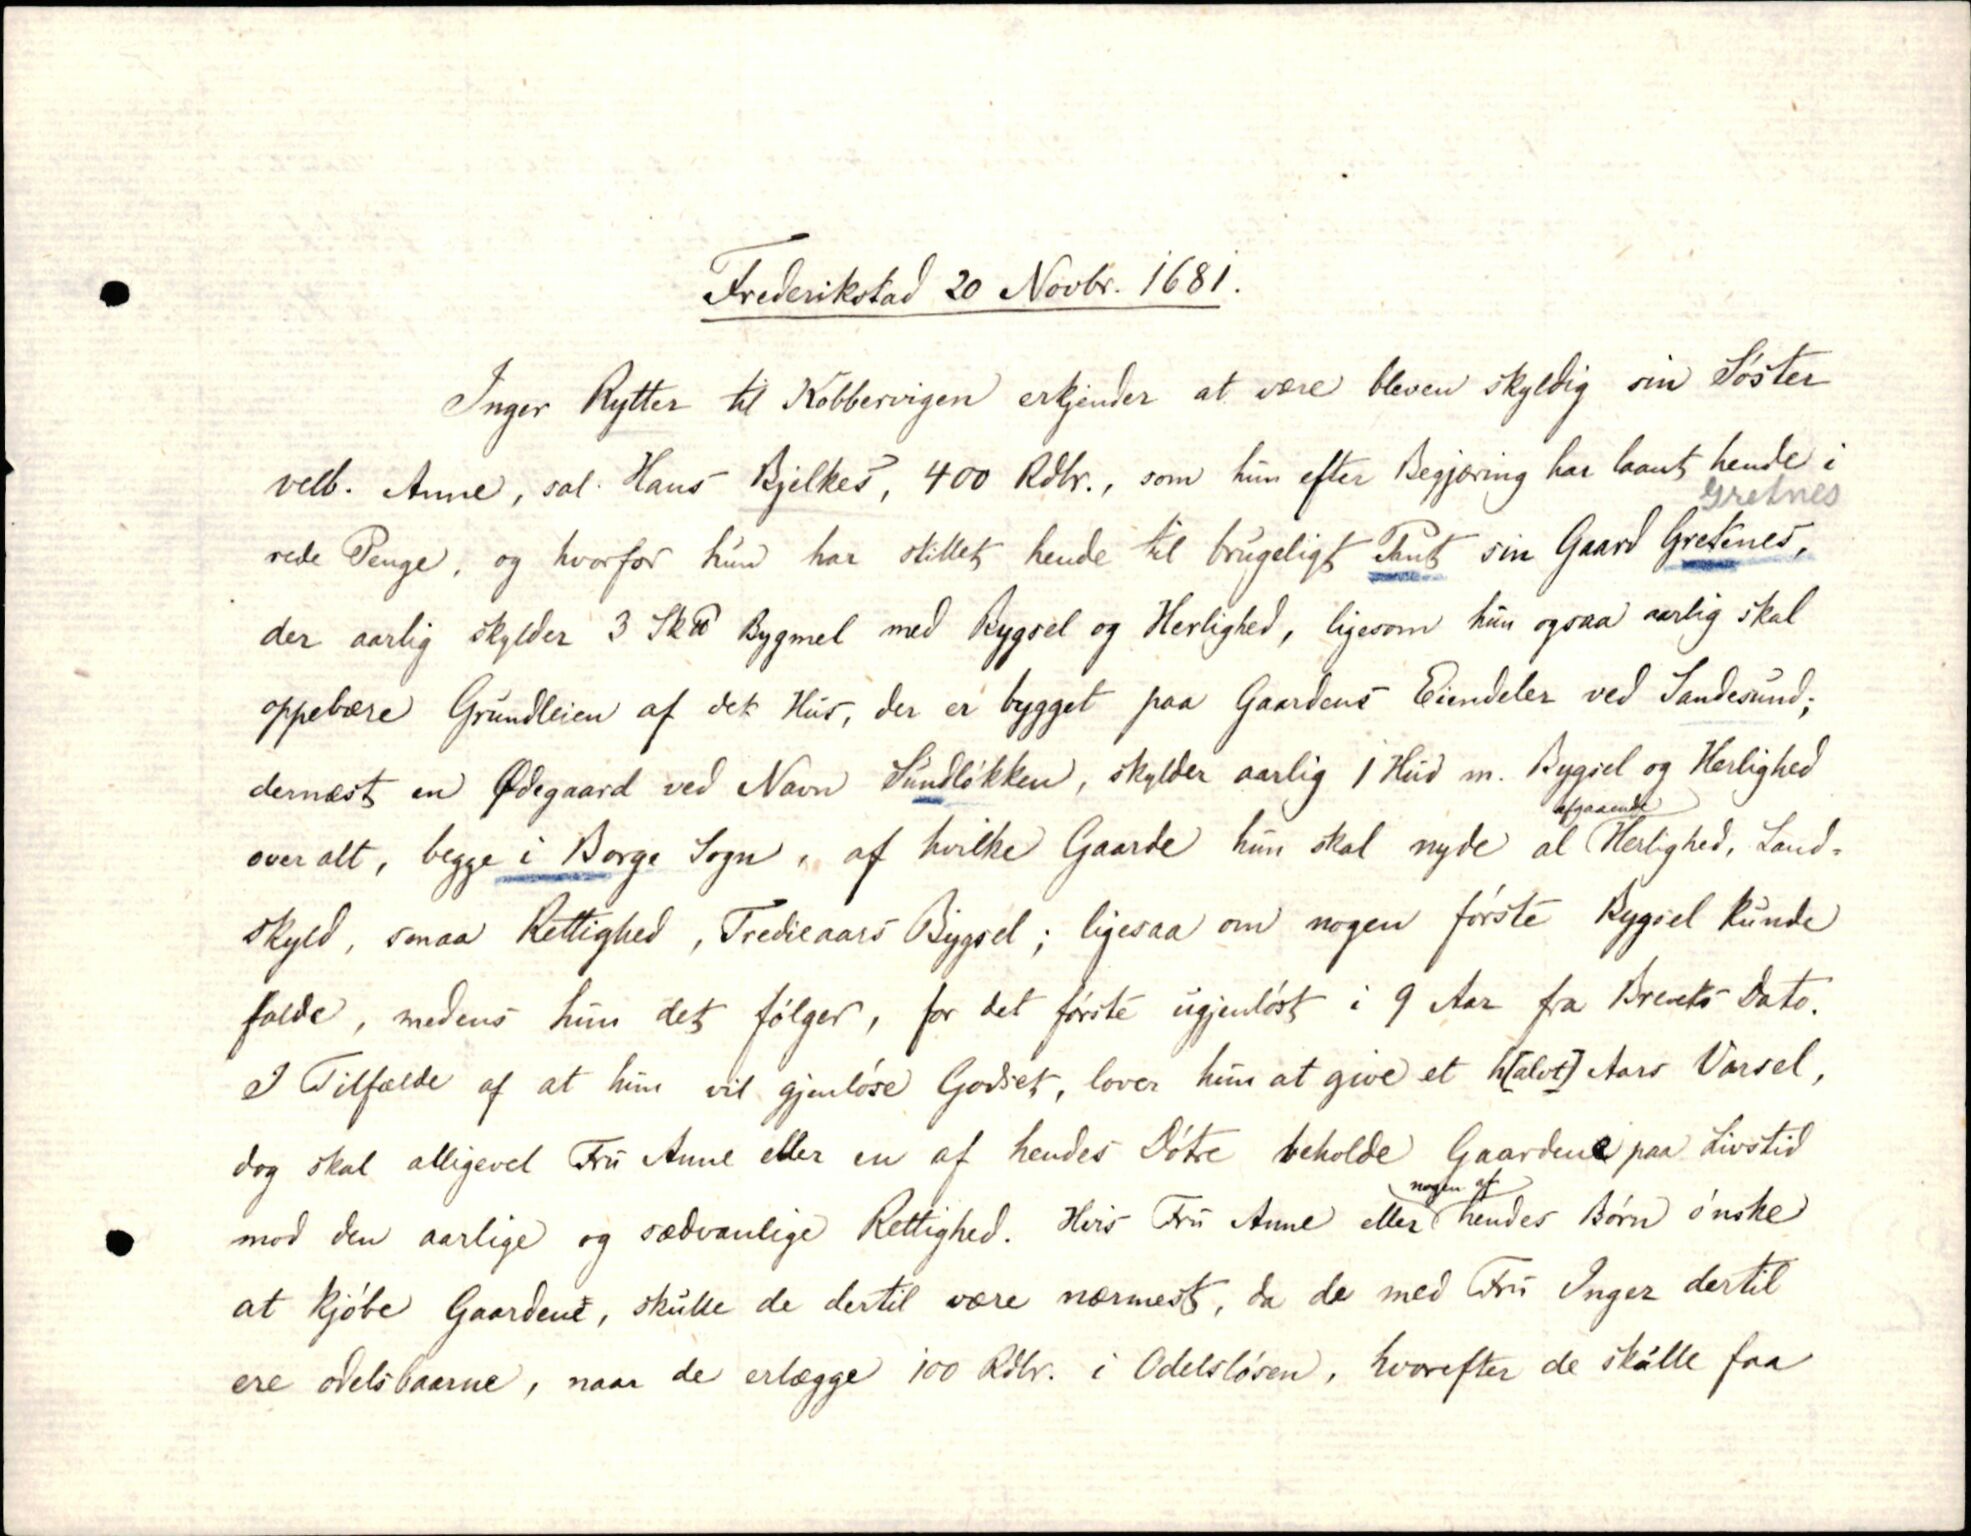 Frederikstad 20 Novbr. 1681.
Inger Rytter til Kobbervigen erkjender at være bleven skyldig sin Søster
velb. Anne, sal. Hans Bjelkes, 400 Rdlr., som hun efter Begjæring har laant hende i
Gretnes
rede Penge, og hvorfor hun har stillet hende til brugeligt Pant sin Gaard Gretenes,
der aarlig skylder 3 Sk℔ Bygmel med Bygsel og Herlighed, ligesom hun ogsaa aarlig skal
oppebære Grundleien af det Hus, der er bygget paa Gaardens Eiendeler ved Sandesund;
dernæst en Ødegaard ved Navn Sundløkken, skylder aarlig 1 Hud m. Bygsel og Herlighed
afgaaende
over alt, begge i Borge Sogn, af hvilke Gaarde hun skal nyde al Herlighed, Land-
skyld, smaa Rettighed, Tredieaars Bygsel; ligesaa om nogen første Bygsel kunde
falde, medens hun det følger, for det første ugjenløst i 9 Aar fra Brevets Dato.
I Tilfælde af at hun vil gjenløse Godset, lover hun at give et h[alvt] Aars Varsel,
dog skal alligevel Fru Anne eller en af hendes Døtre beholde Gaardene paa Livstid
nogen af
mod den aarlige og sædvanlige Rettighed. Hvis Fru Anne eller hendes Børn ønske
at kjøbe Gaardene, skulle de dertil være nærmest, da de med Fru Inger dertil
ere odelsbaarne, naar de erlægge 100 Rdlr. i Odelsløsen, hvorefter de skulle faa